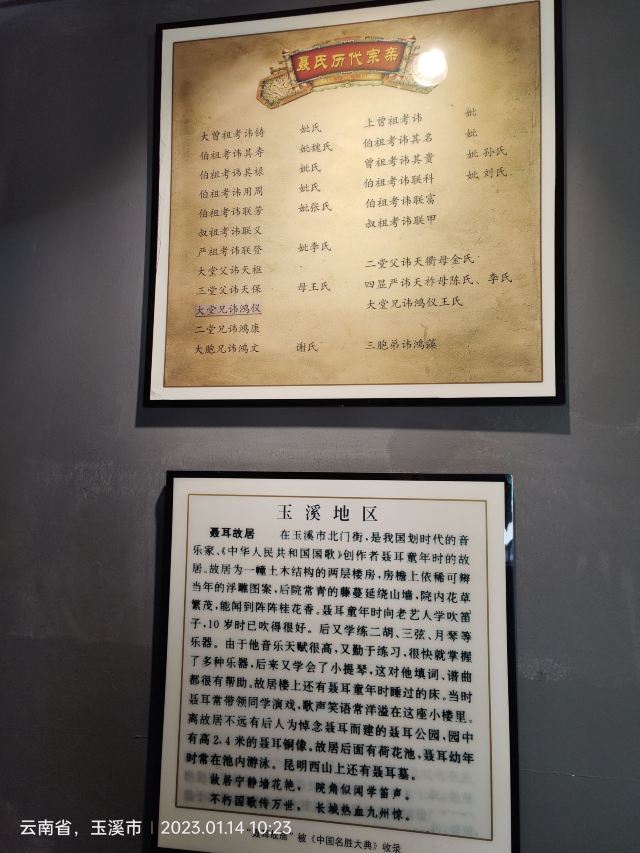 聂氏历代宗亲
大曾祖考讳铸 妣氏 上曾祖考讳 妣
伯祖考讳其寿 妣魏氏 伯祖考讳其名 妣
伯祖考讳其禄 妣氏 曾祖考讳其贵 妣孙氏
伯祖考讳用周 妣氏 伯祖考讳联科 妣刘氏
伯祖考讳联芳 妣张氏 伯祖考讳联富
叔祖考讳联义 叔祖考讳联甲
严祖考讳联登 妣李氏
大堂父讳天祖 二堂父讳天衢母金氏
三堂父讳天保 母王氏 四显严讳天祚母陈氏、李氏
大堂兄讳鸿仪 大堂兄讳鸿仪王氏
二堂兄讳鸿康
大胞兄讳鸿文 谢氏 三胞弟讳鸿藻
玉溪地区
聂耳故居 在玉溪市北门街,是我国划时代的音
乐家、《中华人民共和国国歌》创作者聂耳童年时的故
居。故居为一幢土木结构的两层楼房,房檐上依稀可辨
当年的浮雕图案,后院常青的藤蔓延绕山墙,院内花草
繁茂,能闻到阵阵桂花香。聂耳童年时向老艺人学吹笛
子,10岁时已吹得很好。后又学练二胡、三弦、月琴等
乐器。由于他音乐天赋很高,又勤于练习,很快就掌握
了多种乐器,后来又学会了小提琴,这对他填词、谱曲
都很有帮助。故居楼上还有聂耳童年时睡过的床。当时
聂耳常带领同学演戏,歌声笑语常洋溢在这座小楼里。
离故居不远有后人为悼念聂耳而建的聂耳公园,园中
有高2.4米的聂耳铜像。故居后面有荷花池,聂耳幼年
时常在池内游泳。昆明西山上还有聂耳墓。
故居宁静墙花艳, 院角似闻学笛声。
不朽国歌传万世, 长城热血九州惊。
"聂耳故居"被《中国名胜大典》收录
云南省，玉溪市 | 2023.01.14 10:23